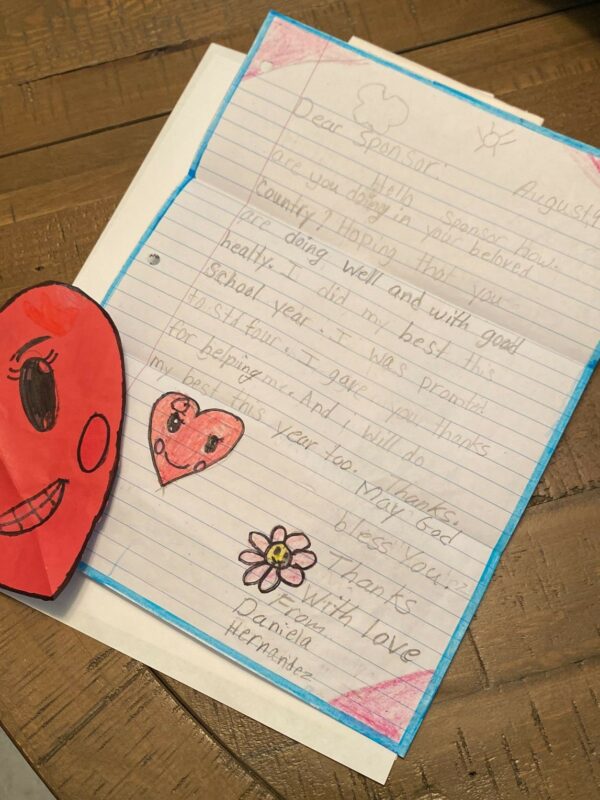 August,9
Dear Sponsor:
Hello sponsor how
are you doing in your beloved
country? Hoping that you
are doing well and with good
healty. I did my best this
school year. I was promted
to std four. I gave you thanks
for helping me. And i will do
my best this year too. Thanks.
May God
bless You!
Thanks
With Love
From
Daniela
Hernandez